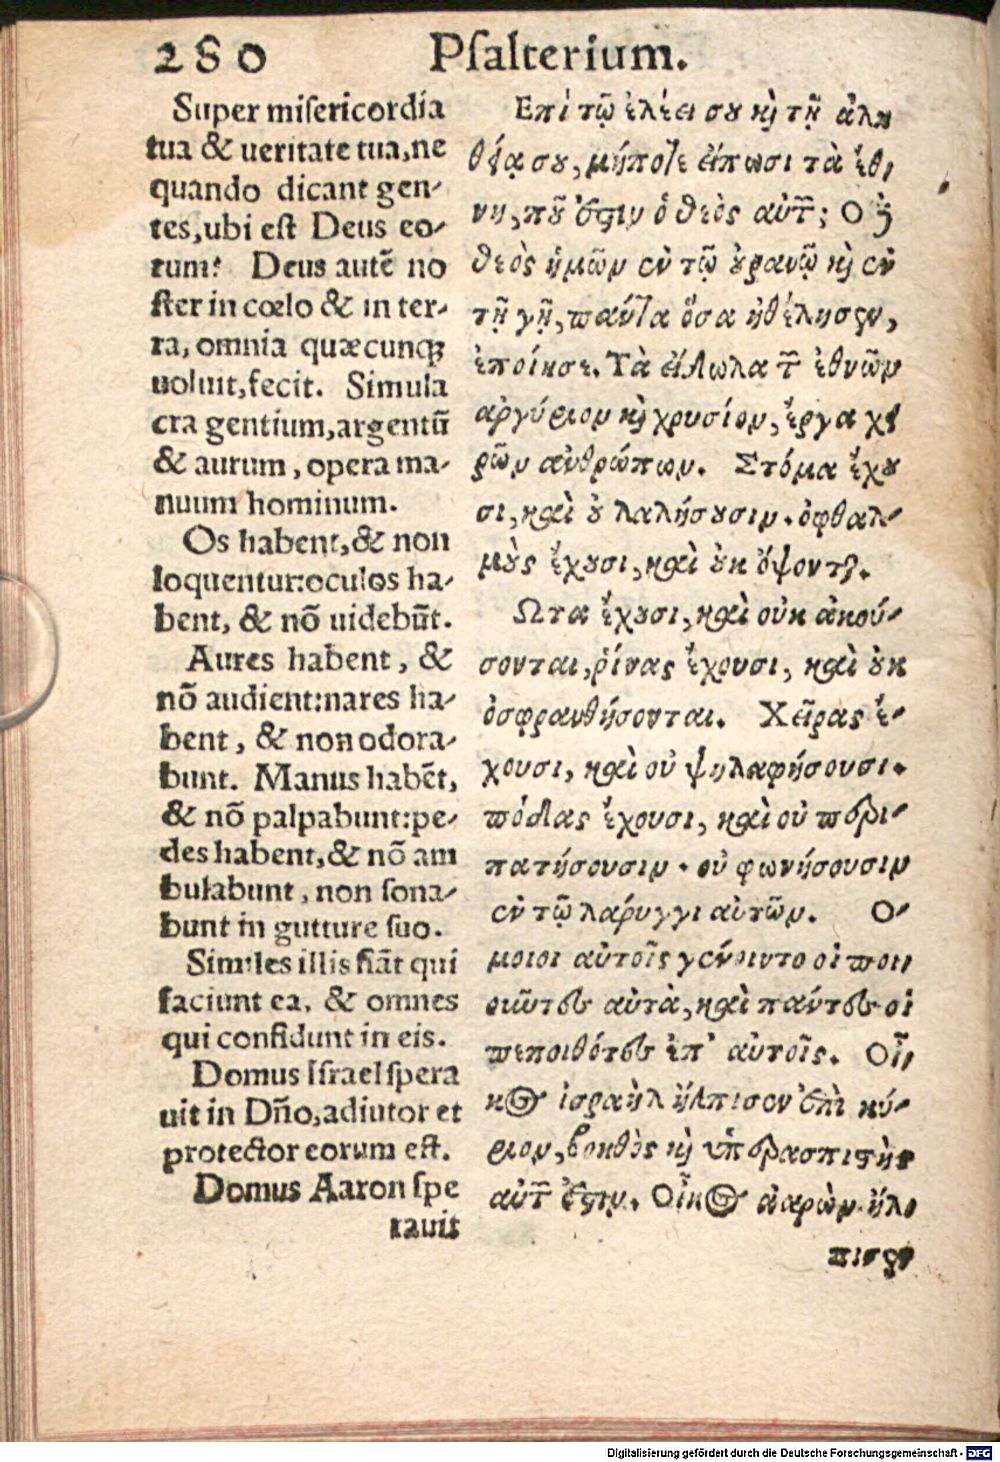 280 Psalterium.
Super misericordia
tua & ueritate tua, ne
quando dicant gen-
tes, ubi est Deus eo-
rum? Deus autē no
ster in cœlo & in ter-
ra, omnia quæcunqꝫ
uoluit, fecit. Simula
cra gentium, argentū
& aurum, opera ma-
nuum hominum.
Os habent, & non
loquentur: oculos ha-
bent, & nō uidebūt.
Aures habent, &
nō audient: nares ha-
bent, & non odora-
bunt. Manus habēt,
& nō palpabunt: pe-
des habent, & nō am
bulabunt, non sona-
bunt in gutture suo.
Similes illis fiāt qui
faciunt ea, & omnes
qui confidunt in eis.
Domus Israel spera
uit in Dño, adiutor et
protector eorum est.
Domus Aaron spe
rauit
Επὶ τῷ ἐλέει σου καὶ τῇ ἀλη
θείᾳ σου, μήποτε εἴπωσι τὰ ἔθ-
νη, ποῦ ἐστιν ὁ θεὸς αὐτῶν; Ο δὲ
θεὸς ἡμῶν ἐν τῷ οὐρανῷ καὶ ἐν
τῇ γῇ, πάντα ὅσα ἠθέλησεν,
ἐποίησε. Τὰ εἴδωλα τῶν ἐθνῶν
ἀργύριον καὶ χρυσίον, ἔργα χει
ρῶν ἀνθρώπων. Στόμα ἔχου
σι, καὶ οὐ λαλήσουσιν. ὀφθαλ-
μοὺς ἔχουσι, καὶ οὐκ ὄψονται.
Ωτα ἔχουσι, καὶ οὐκ ἀκού-
σονται, ῥίνας ἔχουσι, καὶ οὐκ
ὀσφρανθήσονται. Χεῖρας ἔ-
χουσι, καὶ οὐ ψηλαφήσουσι.
πόδας ἔχουσι, καὶ οὐ περι-
πατήσουσιν. οὐ φωνήσουσιν
ἐν τῷ λάρυγγι αὐτῶν. Ο-
μοιοι αὐτοῖς γένοιντο οἱ ποι-
οιῶντες αὐτὰ, καὶ πάντες οἱ
πεποιθότες ἐπ' αὐτοῖς. Οἶ-
κος ἰσραὴλ ἤλπισεν ἐπὶ κύ-
ριον, βοηθὸς καὶ ὑπερασπιστὴς
αὐτῶν ἐστιν. Οἶκος ἀαρὼν ἤλ-
πισεν
Digitalisierung gefördert durch die Deutsche Forschungsgemeinschaft - DFG